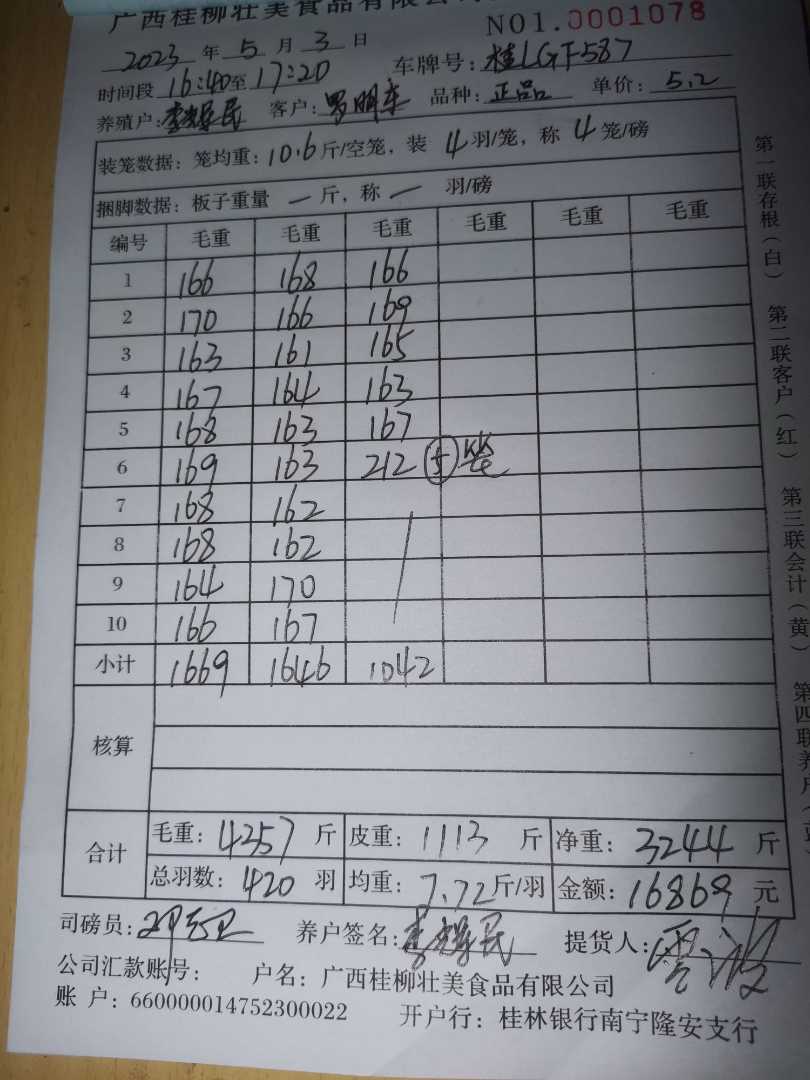 广西桂柳壮美食品有限公司
NO1.0001078
2023 年 5 月 3 日
时间段 16:40至 17:20 车牌号: 桂LGF587
养殖户: 李 民 客户: 罗明车 品种: 正品 单价: 5.2
装笼数据: 笼均重: 10.6 斤/空笼, 装 4 羽/笼, 称 4 笼/磅
捆脚数据: 板子重量 一 斤, 称 一 羽/磅
编号 毛重 毛重 毛重 毛重 毛重 毛重
1 166 168 166
2 170 166 169
3 163 161 165
4 167 164 163
5 168 163 167
6 169 163 212 5笼
7 168 162
8 168 162
9 164 170
10 166 167
小计 1669 1646 1042
核算
合计 毛重: 4357 斤 皮重: 1113 斤 净重: 3244 斤
总羽数: 420 羽 均重: 7.72 斤/羽 金额: 16869 元
司磅员: 养户签名: 李 民 提货人:
公司汇款账号: 户名: 广西桂柳壮美食品有限公司
账 户: 660000014752300022 开户行: 桂林银行南宁隆安支行
第一联存根(白) 第二联客户(红) 第三联会计(黄) 第四联养户